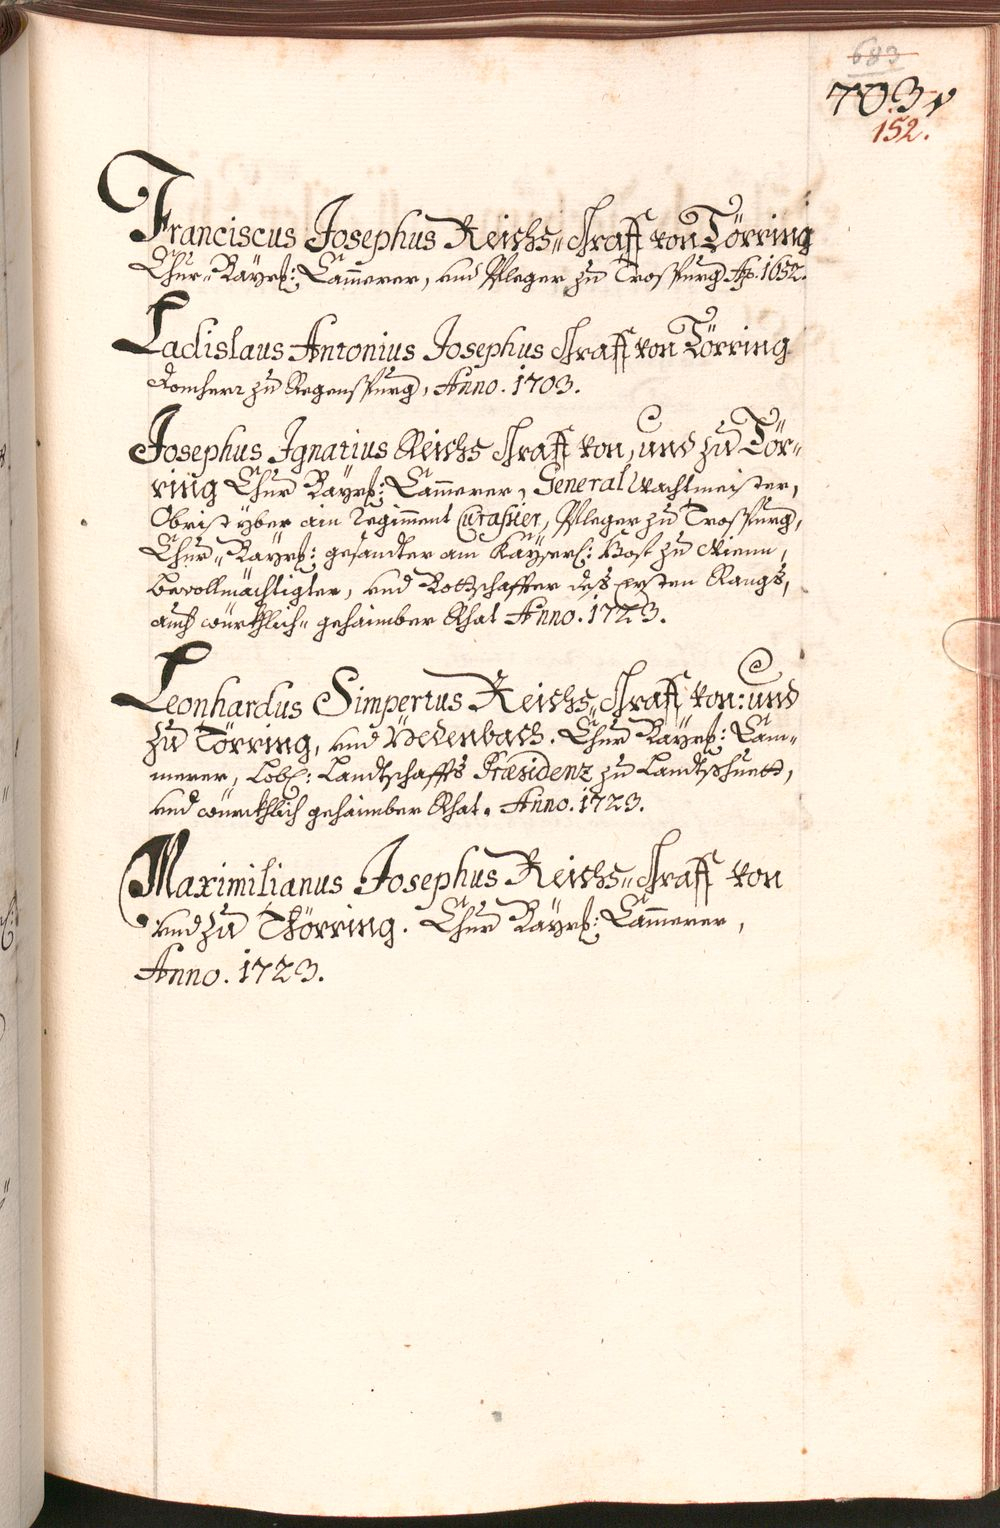 683
703v
152.
Franciscus Josephus Reichs„ Graff von Törring
Chur„ Bayrß: Cam̄erer, und Pfleger zu Trosspurg Aō. 1652.
Ladislaus Antonius Josephus Graff von Törring
Domherr zu Regenspurg, Anno. 1703.
Josephus Ignatius Reichs Graff von, und zu Tör„
ring Chur Bayrß: Cam̄erer, General Wachtmeister,
Obrist yber ain Regiment Curassier, Pfleger zu Trosspurg,
Chur„ Bayrß: gesandter am Kayserl: Hoff zu Wienn,
Bevollmächtigter, und Bottschaffter des Ersten Rangs,
auch würkhlich„ gehaimber Rhat Anno. 1723.
Leonhardus Simpertus Reichs„ Graff von: und
zu Törring, und Bayr Chur Bayrß: Cam„
merer, Lobl: Landtschaffts Præsidenz zu Landtshuett,
und würckhlich gehaimber Rhat. Anno. 1723.
Maximilianus Josephus Reichs„ Graff von
und zu Thörring. Chur Bayrß: Cam̄erer,
Anno. 1723.